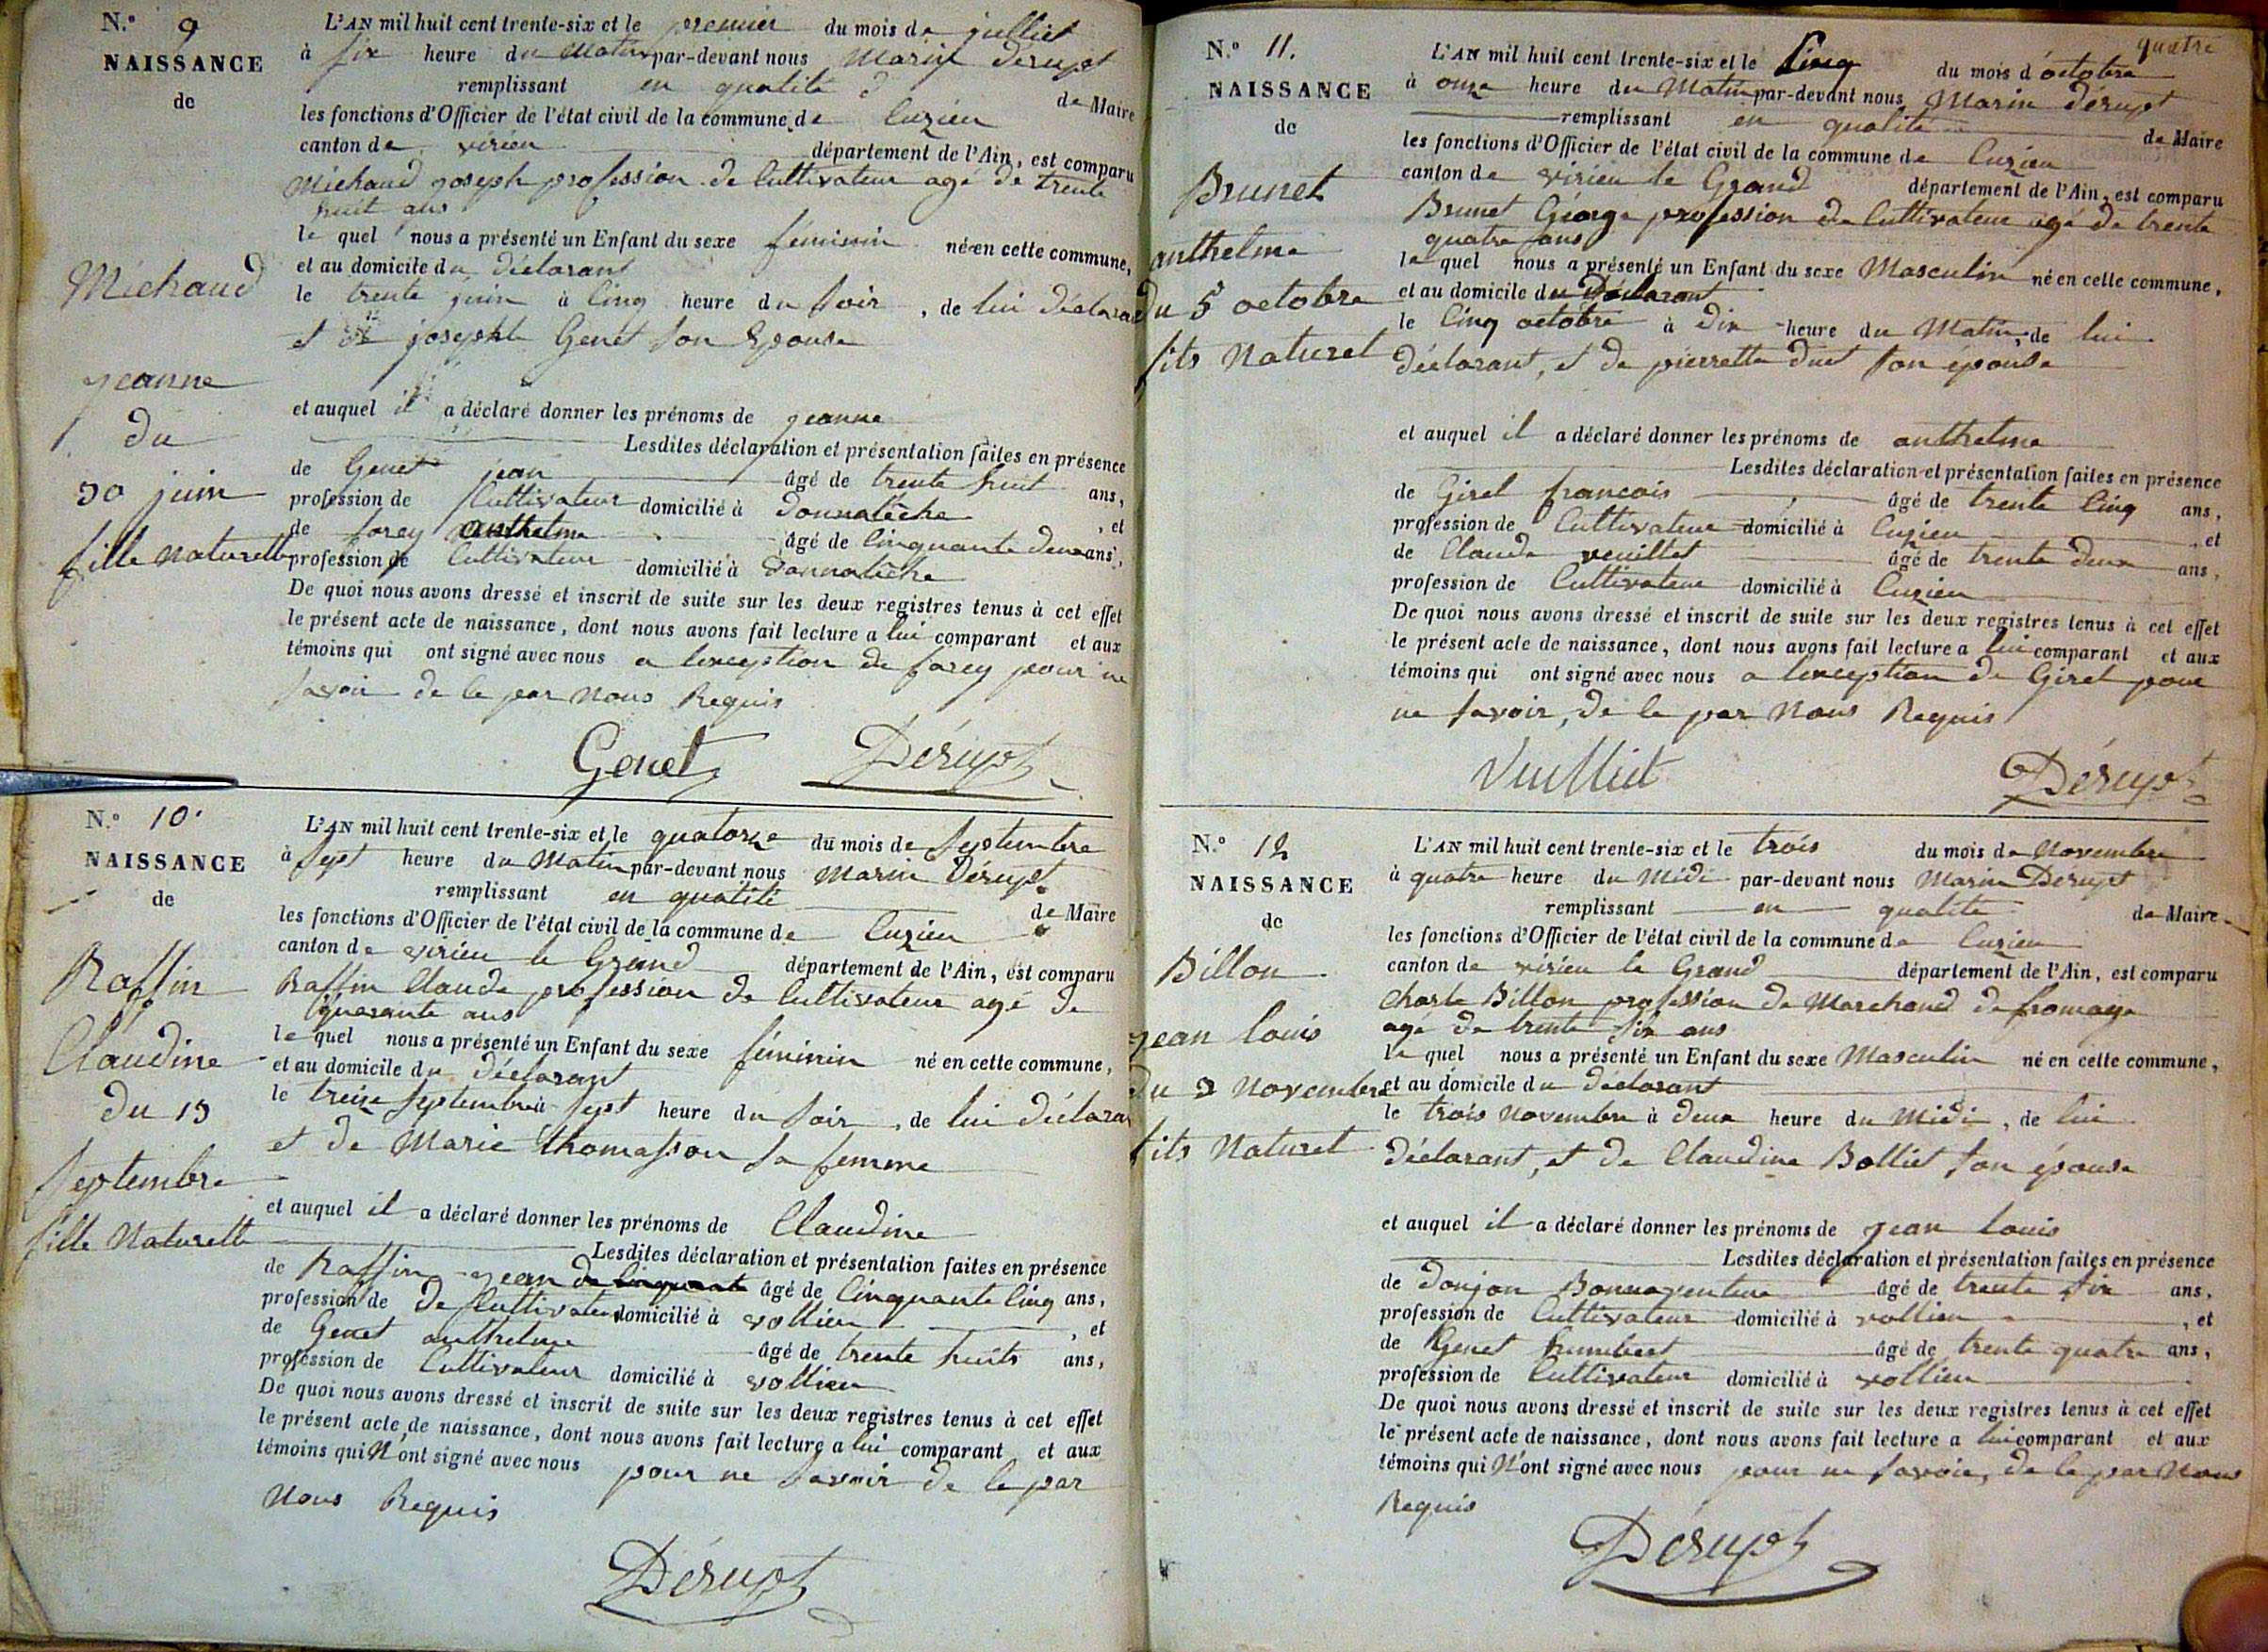 N.° 9
NAISSANCE
de
Michaud
jeanne
du
30 juin
fille naturelle
L'AN mil huit cent trente-six et le premier du mois de juilliet
à six heure du Matin par-devant nous Marin Dérupt
remplissant en qualité de Maire
les fonctions d'Officier de l'état civil de la commune de Cuzieu
canton de virieu département de l'Ain, est comparu
Michaud joseph profession de Cultivateur agé de trente
huit ans
le quel nous a présenté un Enfant du sexe féminin né en cette commune,
et au domicile du déclarant
le trente juin à cinq heure du soir, de lui déclarant
et de josephte Genet son Epouse
et auquel il a déclaré donner les prénoms de jeanne
Lesdites déclaration et présentation faites en présence
de Genet jean âgé de trente huit ans,
profession de Cultivateur domicilié à Donnalèche, et
de forey anthelme âgé de cinquante deux ans,
profession de Cultivateur domicilié à Donnalèche
De quoi nous avons dressé et inscrit de suite sur les deux registres tenus à cet effet
le présent acte de naissance, dont nous avons fait lecture a lui comparant et aux
témoins qui ont signé avec nous a lexception de forey pour ne
savoir de le par nous Requis
Genet Dérupt
N.° 10.
NAISSANCE
de
Raffin
Claudine
du 13
Septembre
fille Naturelle
L'AN mil huit cent trente-six et le quatorze du mois de Septembre
à sept heure du Matin par-devant nous Marin Dérupt
remplissant en qualité de Maire
les fonctions d'Officier de l'état civil de la commune de Cuzieu
canton de virieu le Grand département de l'Ain, est comparu
Raffin Claude profession de Cultivateur agé de
quarante ans
le quel nous a présenté un Enfant du sexe féminin né en cette commune,
et au domicile du déclarant
le treize septembre à sept heure du soir, de lui déclarant
et de Marie thomasson sa femme
et auquel il a déclaré donner les prénoms de Claudine
Lesdites déclaration et présentation faites en présence
de Raffin jean de cinquante âgé de cinquante cinq ans,
profession de de Cultivateur domicilié à vollien, et
de Genet anthelme âgé de trente huits ans,
profession de Cultivateur domicilié à vollien
De quoi nous avons dressé et inscrit de suite sur les deux registres tenus à cet effet
le présent acte de naissance, dont nous avons fait lecture a lui comparant et aux
témoins qui N'ont signé avec nous pour ne savoir de le par
Nous Requis
Dérupt
quatre
N.° 11.
NAISSANCE
de
Brunet
anthelme
du 5 octobre
fils Naturel
L'AN mil huit cent trente-six et le Cinq du mois d'octobre
à onze heure du Matin par-devant nous Marin Dérupt
remplissant en qualité de Maire
les fonctions d'Officier de l'état civil de la commune de Cuzieu
canton de virieu le Grand département de l'Ain, est comparu
Brunet Géorge profession de Cultivateur agé de trente
quatre ans
le quel nous a présenté un Enfant du sexe Masculin né en cette commune,
et au domicile du Déclarant
le Cinq octobre à dix heure du Matin, de lui
déclarant, et de pierrette duet son epouse
et auquel il a déclaré donner les prénoms de anthelme
Lesdites déclaration et présentation faites en présence
de Girel francois âgé de trente Cinq ans,
profession de Cultivateur domicilié à Cuzieu, et
de Claude veuillet âgé de trente deux ans,
profession de Cultivateur domicilié à Cuzieu
De quoi nous avons dressé et inscrit de suite sur les deux registres tenus à cet effet
le présent acte de naissance, dont nous avons fait lecture a lui comparant et aux
témoins qui ont signé avec nous a lexception de Girel pour
ne savoir, de le par Nous Requis
Vuilliet Dérupt
N.° 12
NAISSANCE
de
Billon
jean louis
du 3 novembre
fils Naturel
L'AN mil huit cent trente-six et le trois du mois de Novembre
à quatre heure du Midi par-devant nous Marin Dérupt
remplissant en qualité de Maire
les fonctions d'Officier de l'état civil de la commune de Cuzieu
canton de virieu le Grand département de l'Ain, est comparu
Charle Billon profession de Marchand de fromage
agé de trente six ans
le quel nous a présenté un Enfant du sexe Masculin né en cette commune,
et au domicile du déclarant
le trois Novembre à deux heure du Midi, de lui
déclarant, et de Claudine Bolliet son épouse
et auquel il a déclaré donner les prénoms de jean louis
Lesdites déclaration et présentation faites en présence
de Donjon Bonnaventure âgé de trente six ans,
profession de Cultivateur domicilié à vollien, et
de Genet humbert âgé de trente quatre ans,
profession de Cultivateur domicilié à vollien
De quoi nous avons dressé et inscrit de suite sur les deux registres tenus à cet effet
le présent acte de naissance, dont nous avons fait lecture a lui comparant et aux
témoins qui N'ont signé avec nous pour ne savoir, de le par Nous
Requis
Dérupt